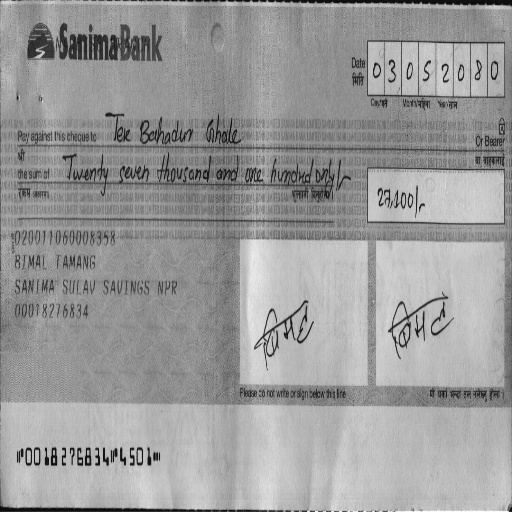 SanimaBank
Date 03052080
मिति Day/गते Month/महिना Year/साल
Pay against this cheque to Tek Bahadur Ghale Or Bearer
श्री वा वाहकलाई
the sum of Twenty seven thousand and one hundred only/-
रकम (अक्षरमा)
27,100/-
020011060008358
BIMAL TAMANG
SANIMA SULAV SAVINGS NPR
00018276834
बिमल बिमल
Please do not write or sign below this line
⑈0018276834⑈4501⑈